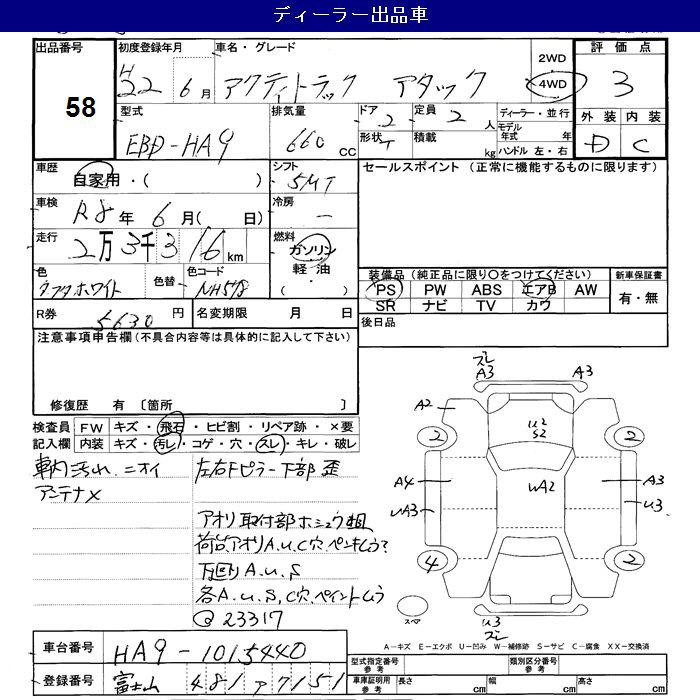 ディーラー出品車
出品番号 58
初度登録年月 H22年 6月
車名・グレード アクティトラック アタック
2WD 4WD
評価点 3
型式 EBD-HA9
排気量 660 CC
ドア 2
形状 T
定員 2人
積載 kg
ディーラー・並行
モデル年式 年
ハンドル 左・右
外装 D 内装 C
車歴 自家用・( )
シフト 5MT
セールスポイント (正常に機能するものに限ります)
車検 R8年 6月( 日)
冷房 -
走行 2万3千316km
燃料 ガソリン・軽油・( )
色 タフタホワイト
色替
色コード NH578
装備品(純正品に限り○をつけてください)
新車保証書
PS PW ABS エアB AW
有・無
SR ナビ TV カワ
R券 5630円
名変期限 月 日
後日品
注意事項申告欄(不具合内容等は具体的に記入して下さい)
修復歴 有〔箇所 〕
検査員 FW キズ・飛石・ヒビ割・リペア跡・×要
記入欄 内装 キズ・汚レ・コゲ・穴・スレ・キレ・破レ
車内汚れ.ニオイ
アンテナ×
左右Fピラー下部歪
アオリ取付部ホシュウ粗
荷台,アオリA.u.C穴.ペンキムラ?
下回りA.u.S
各A.u.S,C穴.ペイントムラ
Q 23317
ズレ
A3 A3
A2
2 2
u2
S2
A4 uA2 A3
uA3 u3
4 2
スペア
u3
ズレ
A-キズ E-エクボ U-凹み W-補修跡 S-サビ C-腐食 XX-交換済
車台番号 HA9-1015440
登録番号 富士山 481 ア 7151
型式指定番号 参考
類別区分番号 参考
車庫証明用 参考 長さ cm 幅 cm 高さ cm